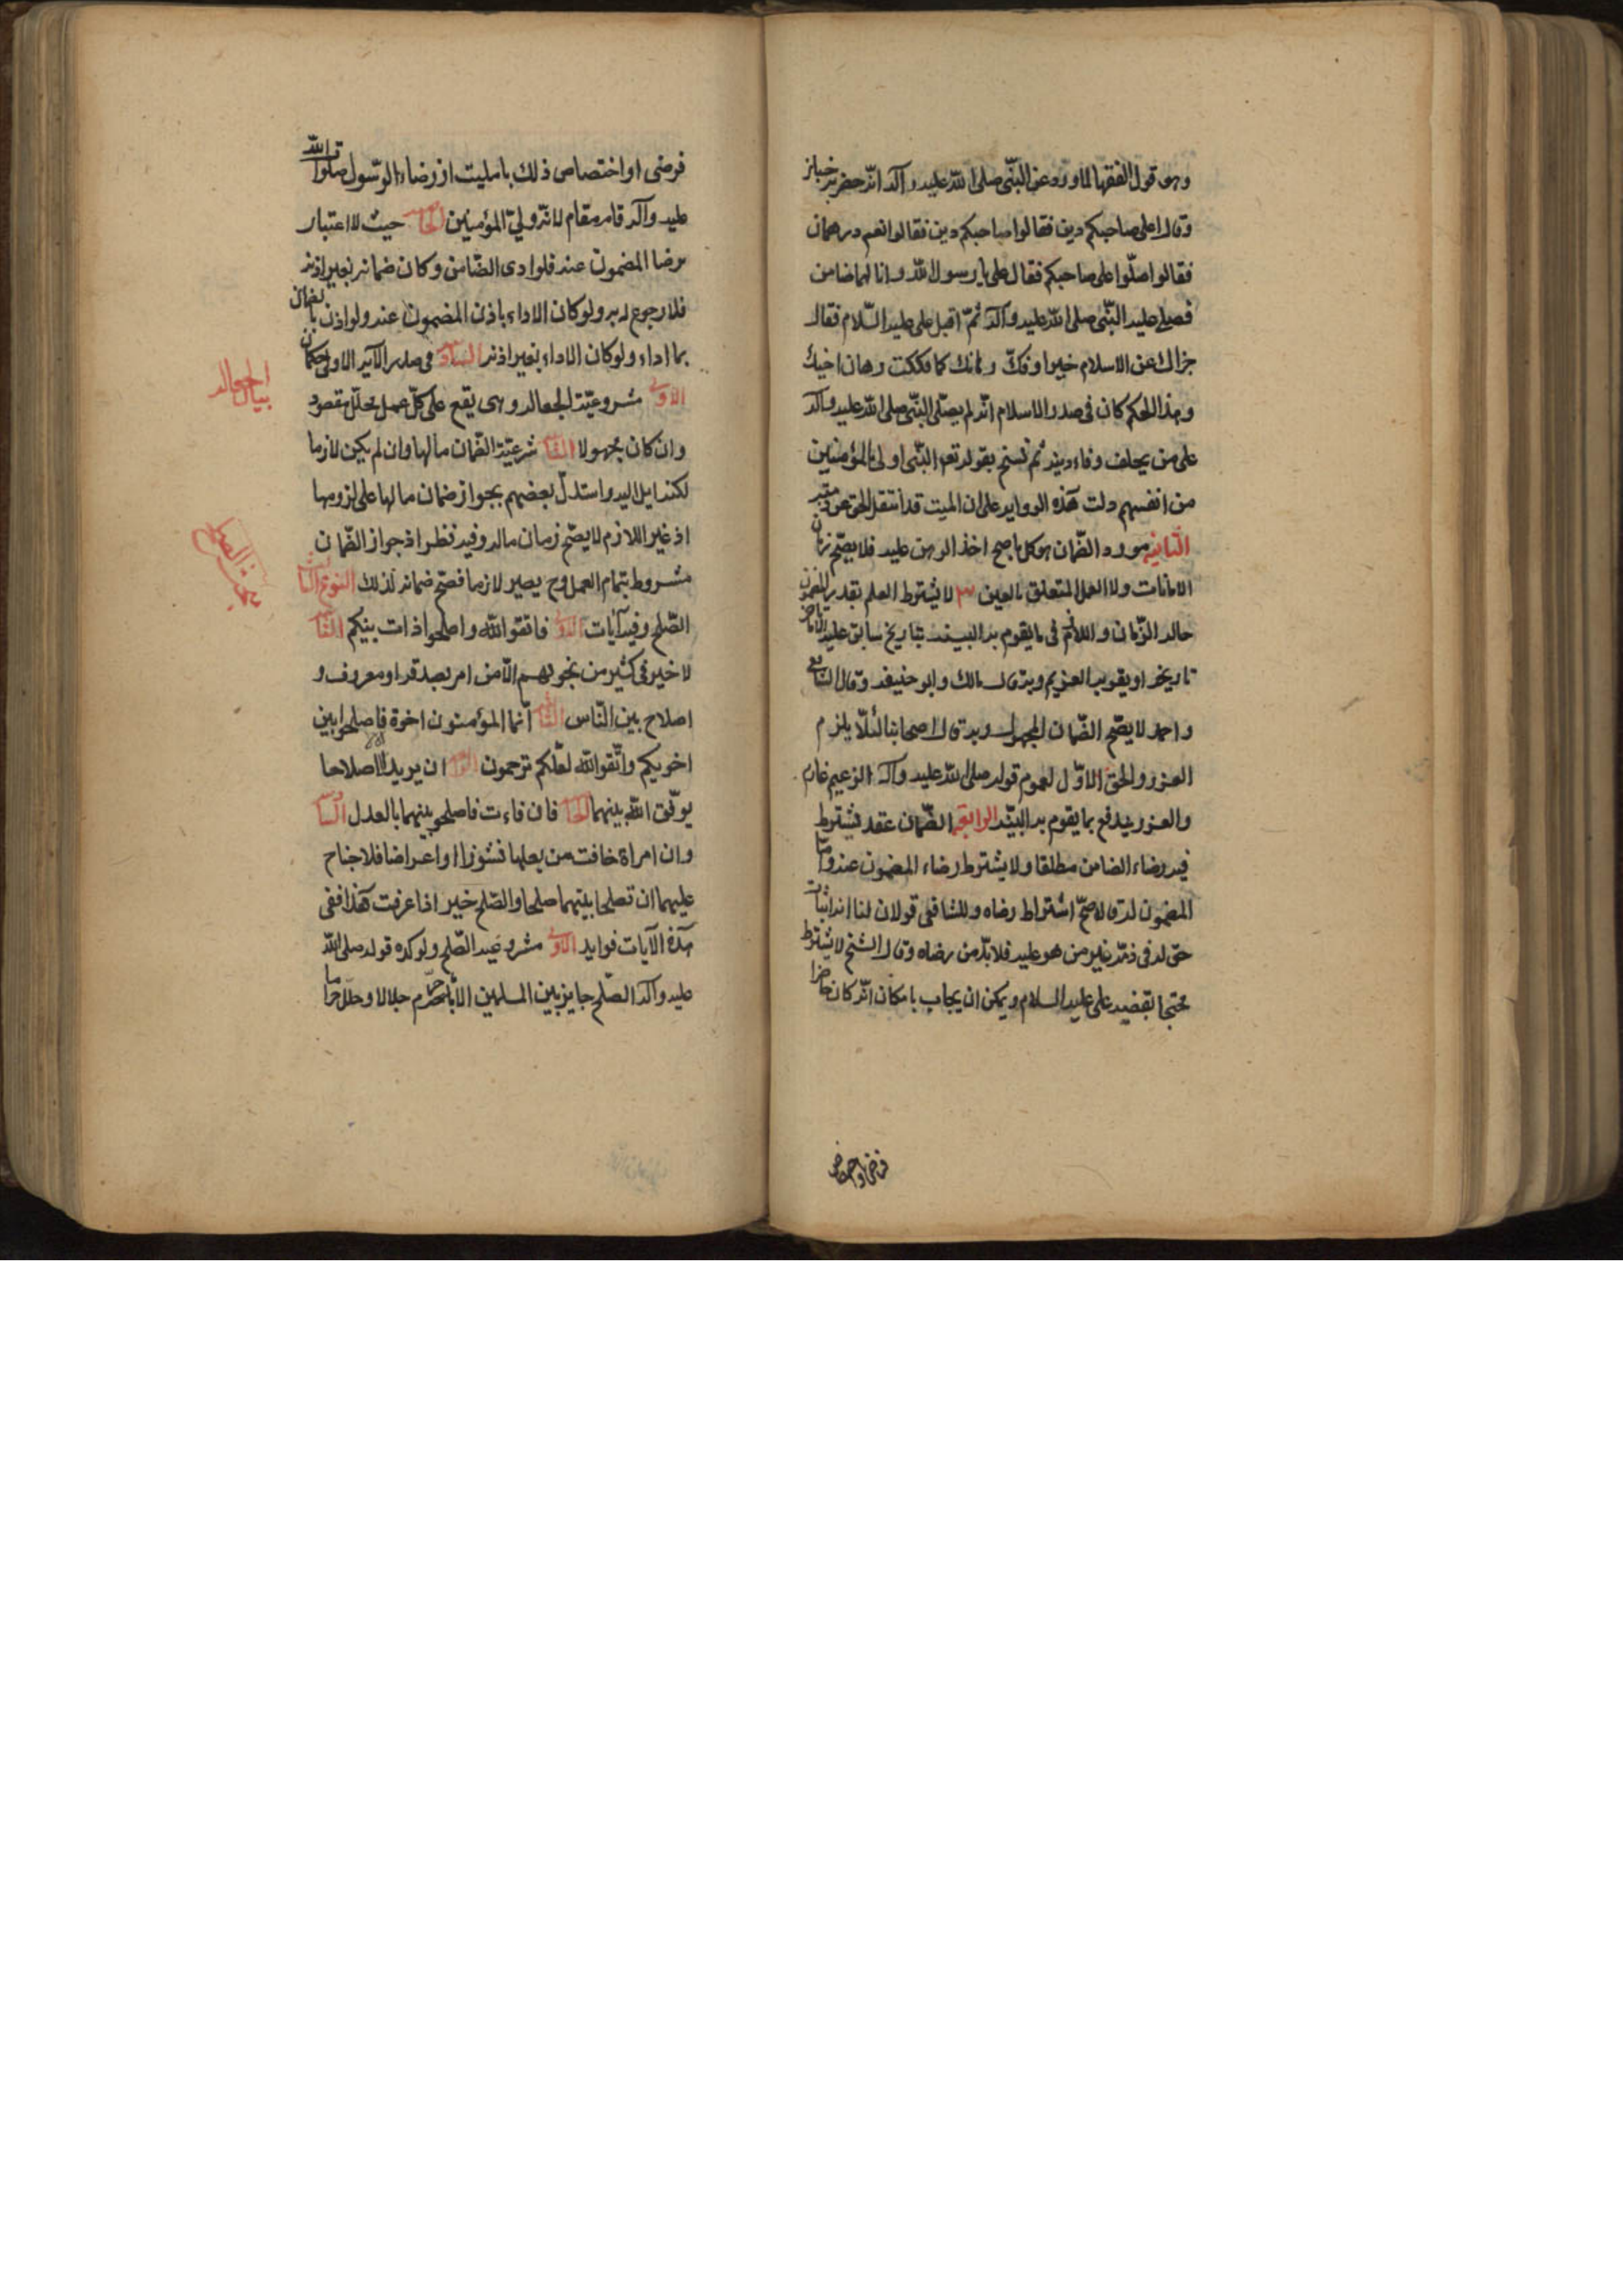 وهو قول الفقها لما ورد عن النبّى صلى الله عليه وآله انّه حضر جنازة
وقال اعلى صاحبكم دين فقالوا صاحبكم دين فقالوا نعم درهمان
فقالوا صلّوا على صاحبكم فقال على يا رسول الله وانا لهما ضامن
فصلى عليه النبّى صلى الله عليه وآله ثمّ اقبل على عليه السّلام فقال
جزاك عن الاسلام خيرا وفكّ رهانك كما فككت رهان اخيك
وهذا الحكم كان فى صدر الاسلام انّه لم يصلّى النبّى صلى الله عليه وآله
على من يخلف وفاء دينه ثم نسخ بقوله تعه النبّى اولى بالمؤمنين
من انفسهم دلت هذه الرواية على ان الميت قد انتقل الحق عن
الثانية مورد الضّمان هو كل ما صح اخذ الرهن عليه فلا يصّح ضمان
الامانات ولا العمل المتعلق بالعين ٣ لا يشترط العلم بقدر المضمون
حاله الزّمان واللازم فى ما يقوم به البينة بتاريخ سابق عليه
تاريخه او يقويه الغريم وبه قال مالك وابو حنيفه وقال الشافعى
واحمد لا يصّح الضّمان المجهول وبه قال اصحابنا لئلّا يلزم
الغرر والحق الاوّل لعموم قوله صلى الله عليه وآله الزعيم غارم
والغرر يندفع بما يقوم به البيّنة الرابعة الضّمان عقد فيشترط
فيه رضاء الضامن مطلقا ولا يشترط رضاء المضمون عنه واما
المضمون له قالاصحّ اشتراط رضاه وللشافعى قولان لنا انه اثبات
حق له فى ذمّة غير من هو عليه فلا بدّ من رضاه وقال الشيخ لا يشترط
محتجا بقضية على عليه السلام ويمكن ان يجاب بامكان انّه كان حاضرا
فرضى او اختصاص
فرضى او اختصاص ذلك بالميت اذ رضاء الرّسول صلوات الله
عليه وآله قام مقام لانّه ولىّ المؤمنين الخامسة حيث لا اعتبار
برضا المضمون عنه فلو ادى الضّامن وكان ضمانه بغير اذنه
فلا رجوع له به ولو كان الاداء باذن المضمون عنه ولو اذن بالضمان
بما اداء ولو كان الاداء بغير اذنه السادسة فى صدر الآية الاولى حكمان
الاولى مشروعيّة الجعاله وهى يقع على كلّ عمل محلّل مقصود
بيان الجعاله
وان كان مجهولا الثانية شرعيّة الضّمان مالها وان لم يكن لازما
لكنه ايل اليه واستدلّ بعضهم بجواز ضمان مالها على لزومها
اذ غير اللازم لا يصّح ضمان ماله وفيه نظر اذ جواز الضّمان
مشروط بتمام العمل وح يصير لازما فصّح ضمانه لذلك النوع الثالث
الصّلح وفيه آيات الاولى فاتقو الله واصلحوا ذات بينكم الثانية
لا خير فى كثير من نجويهم الّا من امر بصدقه او معروف او
اصلاح بين النّاس الثالثة انّما المؤمنون اخوة فاصلحوا بين
اخويكم واتّقوا الله لعلّكم ترحمون الرابعة ان يريدا اصلاحا
يوفّق الله بينهما الخامسة فان فاءت فاصلحو بينهما بالعدل السادسة
وان امراة خافت من بعلها نشوزا او اعراضا فلا جناح
عليهما ان تصلحا بينهما صلحا والصّلح خير اذا عرفت هذا ففى
هذه الآيات فوايد الاولى مشروعية الصّلح ويوكده قوله صلى الله
عليه وآله الصّلح جايز بين المسلمين الا ما حرّم حلالا وحلّل حراما